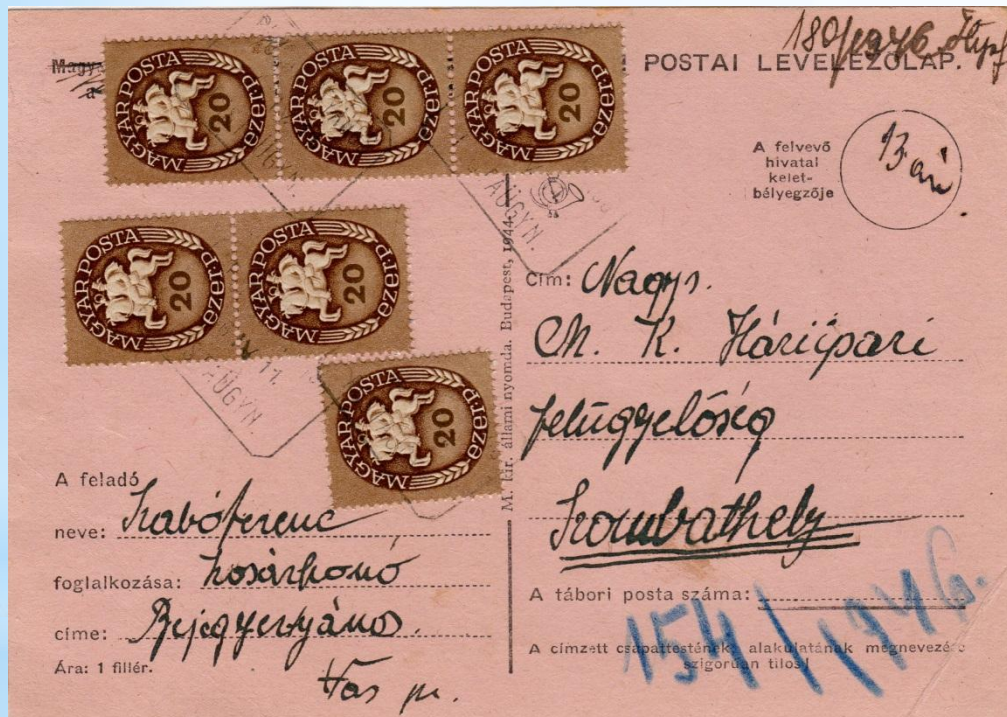 180/1946
POSTAI LEVELEZŐLAP.
MAGYAR POSTA 20 ezer P
MAGYAR POSTA 20 ezer P
MAGYAR POSTA 20 ezer P
A felvevő
hivatal
kelet-
bélyegzője
ÁÜGYN.
MAGYAR POSTA 20 ezer P
MAGYAR POSTA 20 ezer P
11.
ÁÜGYN.
MAGYAR POSTA 20 ezer P
M. kir. állami nyomda. Budapest, 1944.
Cím: Nagys.
M. K. Háziipari
felügyelőség
Szombathely
A tábori posta száma:
A címzett csapattestének, alakulatának megnevezése
szigorúan tilos!
154/1946.
A feladó
neve: Szabó Ferenc
foglalkozása: kosárfonó
címe: Bejcgyertyános
Vas m.
Ára: 1 fillér.